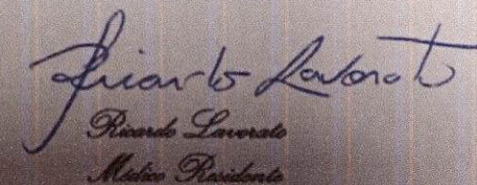 Ricardo Lavorato
Ricardo Lavorato
Médico Residente